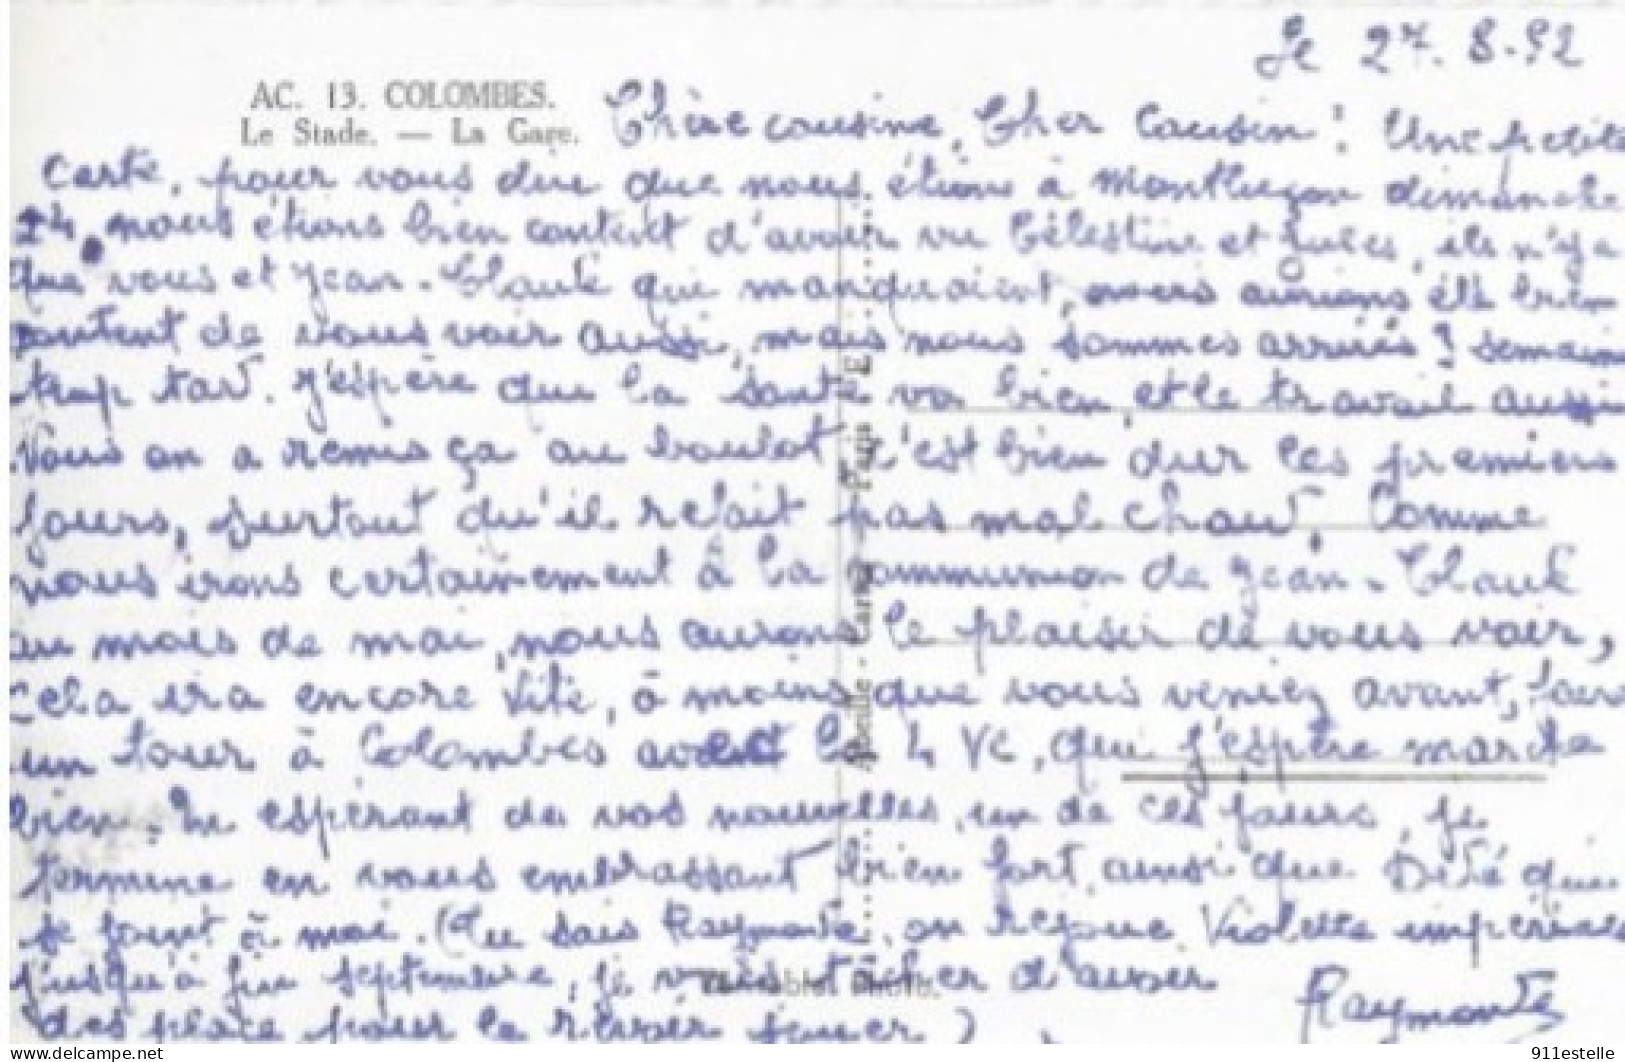 le 27.8.52
AC. 13. COLOMBES.
Le Stade. — La Gare.
Chère cousine, Cher Cousin! Une petite
Carte, pour vous dire que nous étions à Montluçon dimanche
24, nous étions bien content d'avoir vu Célestine et Jules, il n'y a
que vous et Jean-Claude qui manquaient, nous aurions été bien
content de vous voir aussi, mais nous sommes arrivés 1 semaine
trop tard. J'espère que la santé va bien, et le travail aussi
Nous on a remis ça au boulot c'est bien dur les premiers
jours, surtout qu'il refait pas mal chaud. Comme
nous irons certainement à la communion de Jean-Claude
au mois de mai, nous aurons le plaisir de vous voir,
cela ira encore vite, à moins que vous veniez avant, faire
un tour à Colombes avec la 4 VC, qui j'espère marche
bien. En espérant de vos nouvelles, un de ces jours, je
termine en vous embrassant bien fort, ainsi que Dédé qui
se joint à moi. (Tu sais Raymonde, on rejoue Violettes impériales
jusqu'à fin septembre, je vais tâcher d'avoir
des place pour le revoir jouer)
Raymonde
www.delcampe.net
911estelle